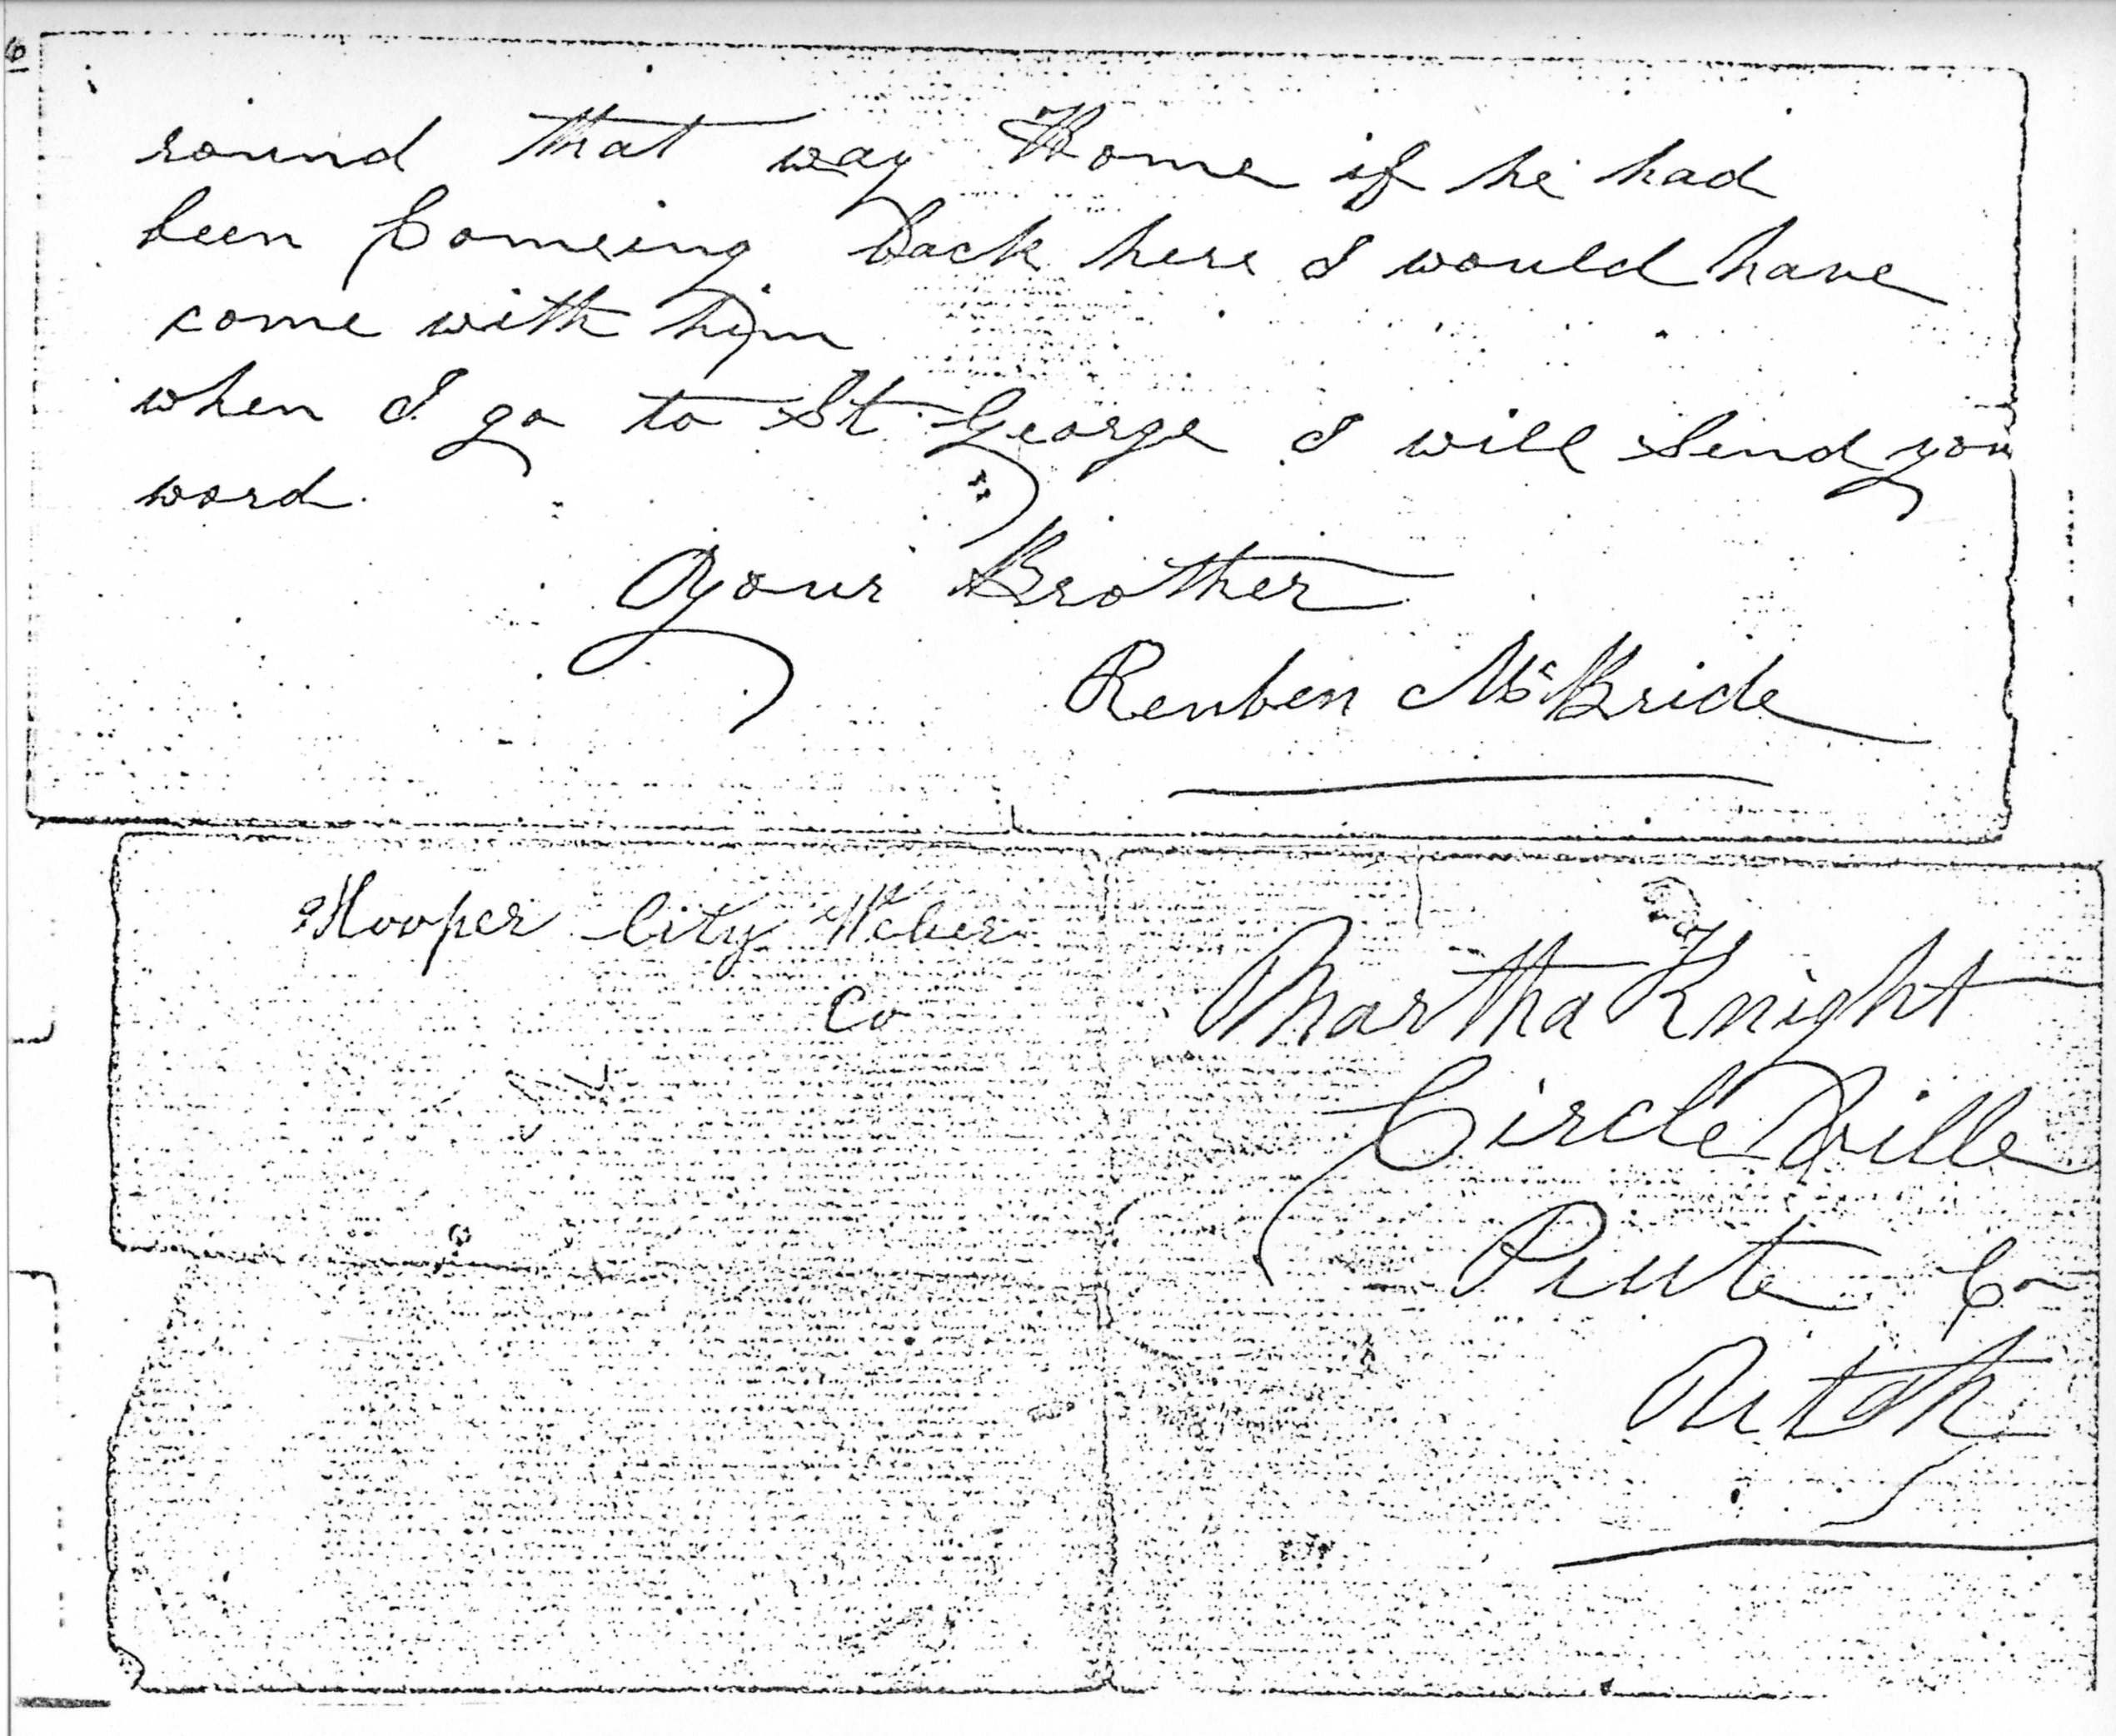 6
round that way Home if he had
been Comeing back here I would have
come with him
when I go to St George I will Send you
word
your Brother
Reuben McBride
Hooper City Weber
Co
Martha Knight
Circle Ville
Piute Co
Utah